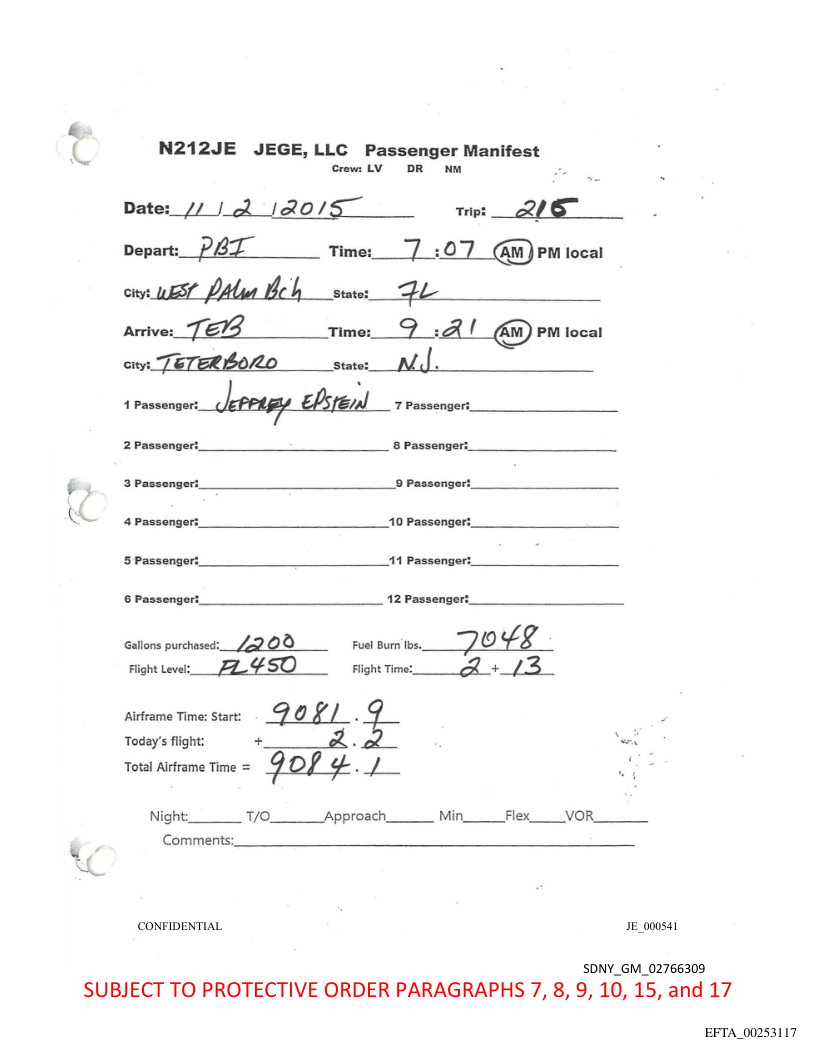 N212JE JEGE, LLC Passenger Manifest
Crew: LV DR NM
Date: 11 / 2 / 2015 Trip: 216
Depart: PBI Time: 7 : 07 AM PM local
City: WEST PALM BCh State: FL
Arrive: TEB Time: 9 : 21 AM PM local
City: TETERBORO State: N.J.
1 Passenger: JEFFREY EPSTEIN 7 Passenger:
2 Passenger: 8 Passenger:
3 Passenger: 9 Passenger:
4 Passenger: 10 Passenger:
5 Passenger: 11 Passenger:
6 Passenger: 12 Passenger:
Gallons purchased: 1200 Fuel Burn lbs. 7048
Flight Level: FL450 Flight Time: 2 + 13
Airframe Time: Start: 9081.9
Today's flight: + 2.2
Total Airframe Time = 9084.1
Night: T/O Approach Min Flex VOR
Comments:
CONFIDENTIAL JE_000541
SDNY_GM_02766309
SUBJECT TO PROTECTIVE ORDER PARAGRAPHS 7, 8, 9, 10, 15, and 17
EFTA_00253117